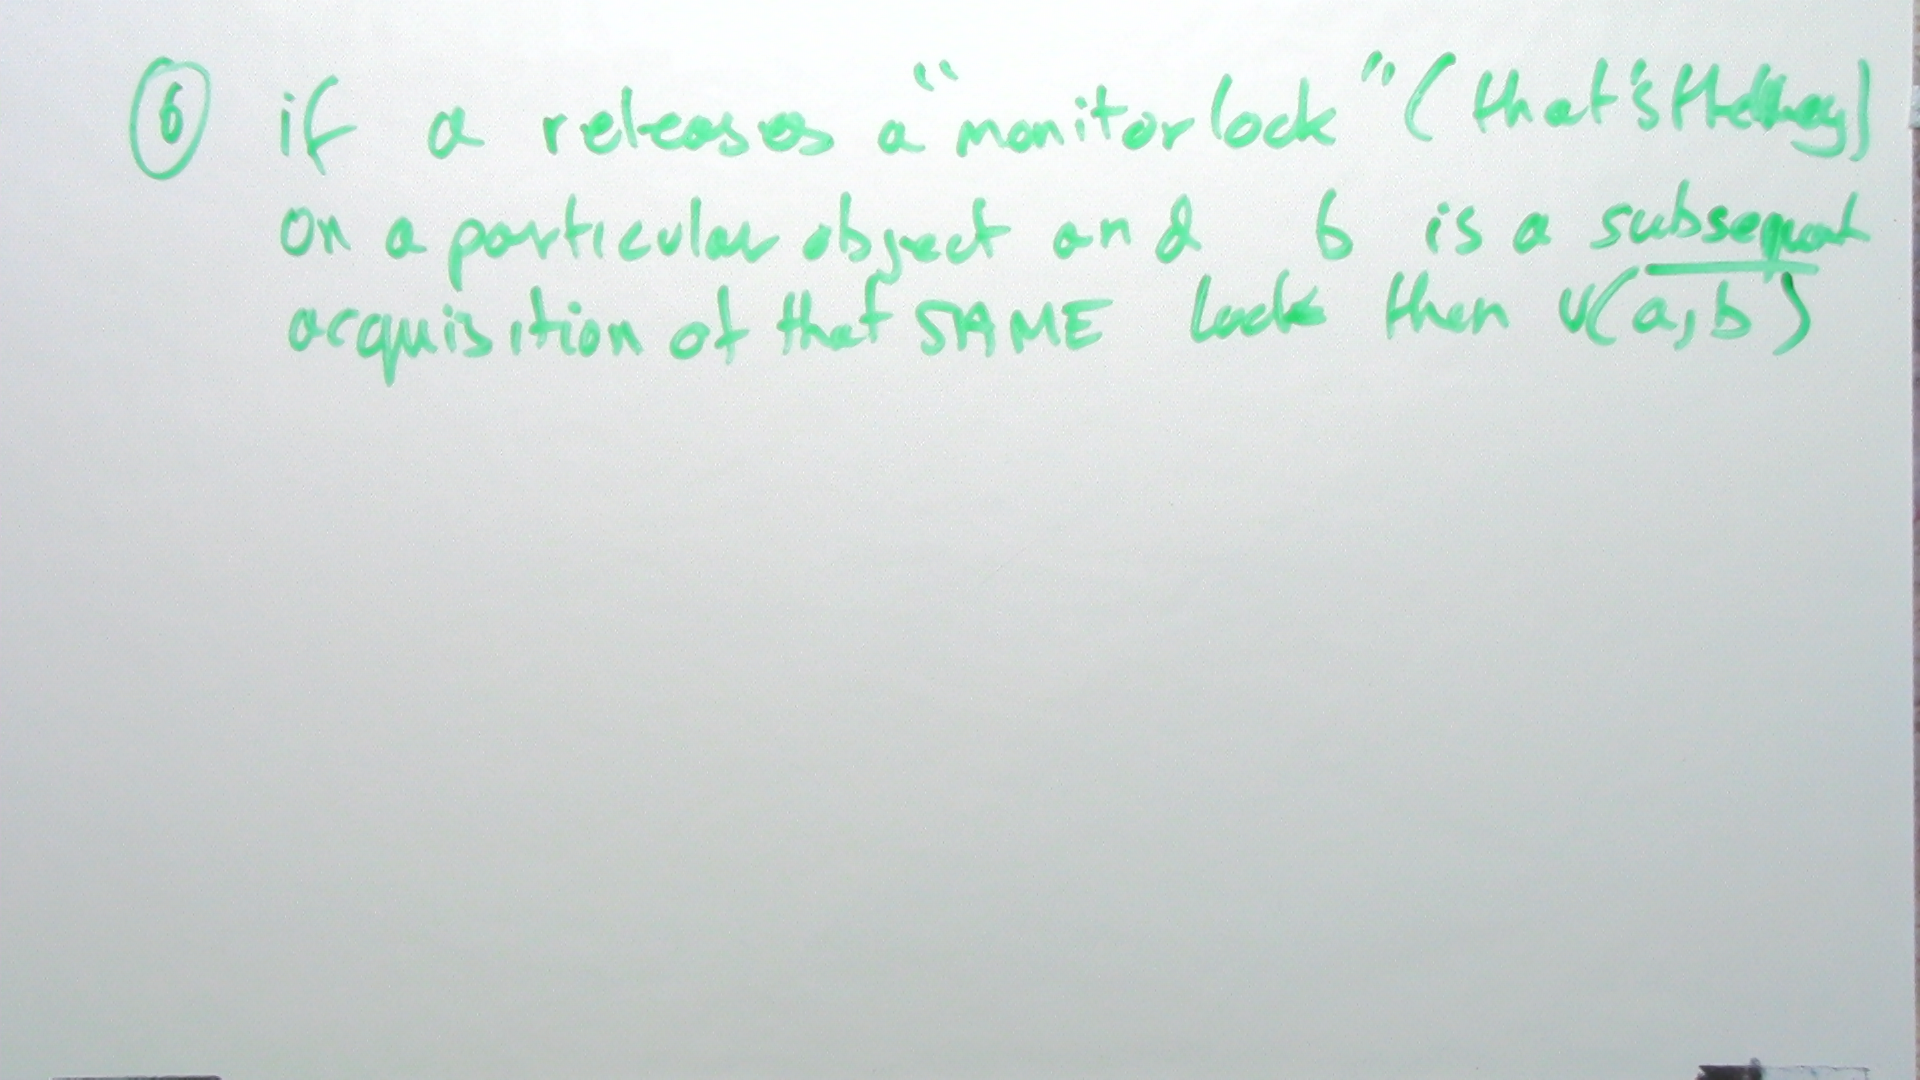 ⑥ if a releases a "monitor lock" (that's the key)
on a particular object and b is a subsequent
acquisition of that SAME lock then v(a,b)